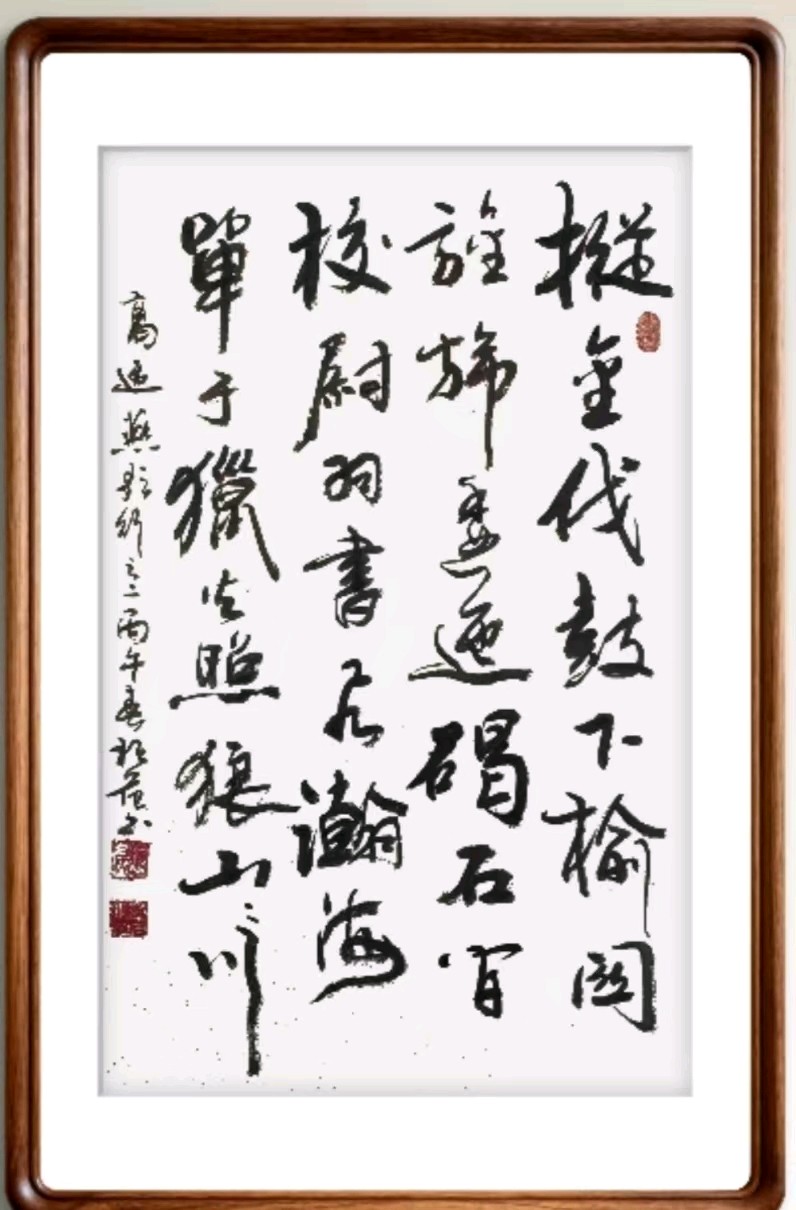 摐金伐鼓下榆關
旌旆逶迤碣石間
校尉羽書飛瀚海
單于獵火照狼山
高適燕歌行之二丙午春書